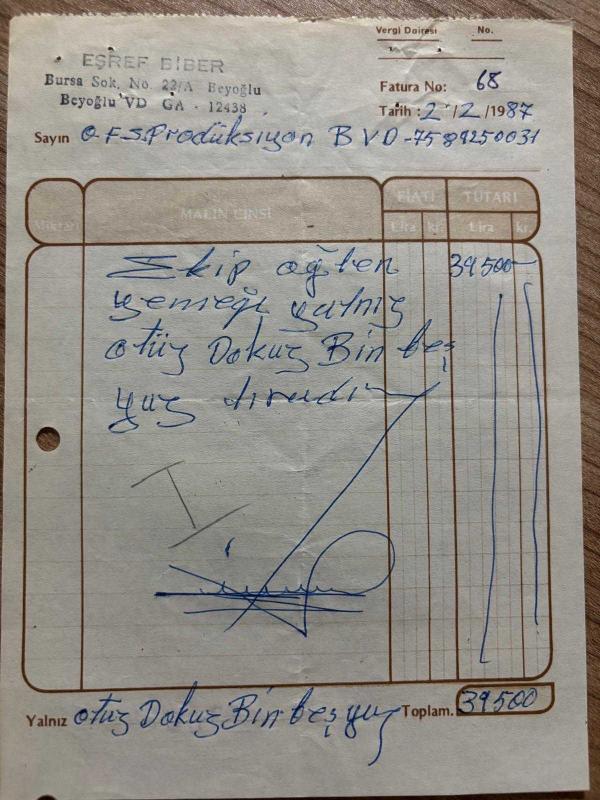 Vergi Dairesi No.
EŞREF BİBER
Bursa Sok. No. 22/A Beyoğlu
Beyoğlu VD GA - 12438
Fatura No: 68
Tarih : 2/2/1987
Sayın O.F.S. Prodüksiyon B V D -7589250031
Miktarı MALIN CİNSİ FİATI TUTARI
Lira kr. Lira kr.
Ekip öğlen 39500-
yemeği yalnız
otüz Dokuz Bin beş
yuz liradır
Yalnız otuz Dokuz Bin beş yuz Toplam. 39500